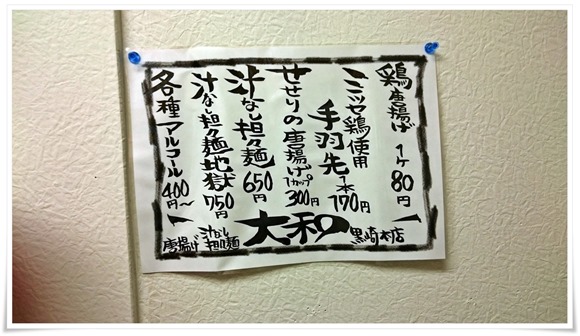 鶏唐揚げ 1ケ 80円
ミツセ鶏使用
手羽先 1本 170円
せせりの唐揚げ 1カップ 300円
汁なし担々麺 650円
汁なし担々麺地獄 750円
各種アルコール 400円〜
唐揚げ 汁なし担々麺 大和 黒崎本店